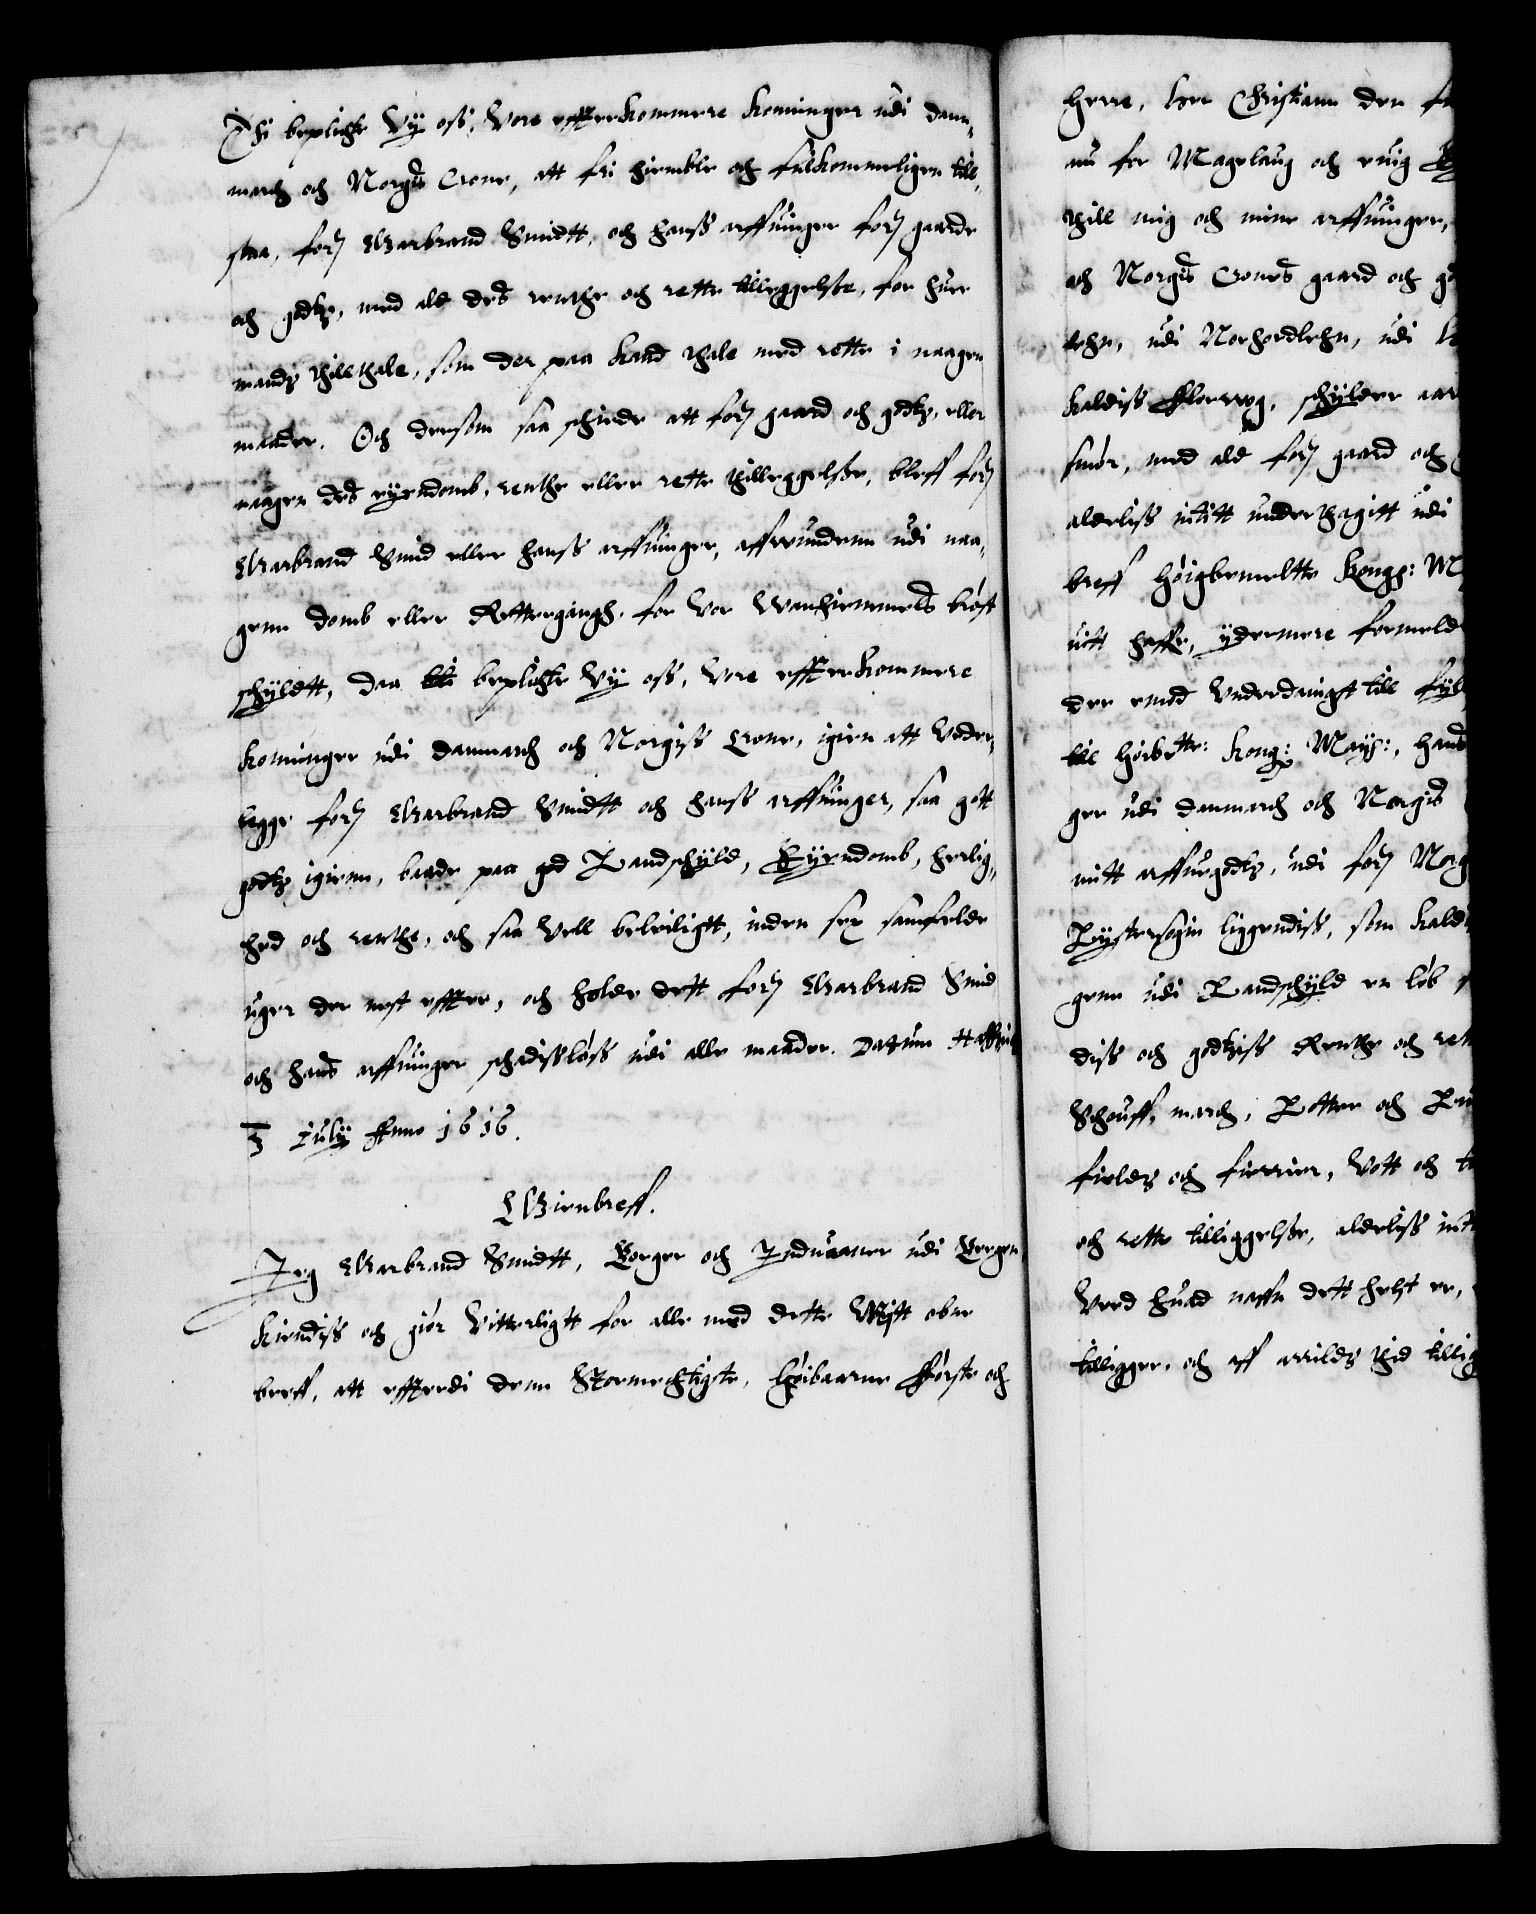 Thi beplichte Vÿ oss, Vore effterkommere Koninger udi Dann-
march och Norgis Crone, att fri hiemble och fulkommeligen till-
staa, forⁿ Warbrand Smidtt, och hanss arffuinger forⁿ gaarde
och godtz, med ald dets renthe och rette tilleggelsse, for huer
mands thilthale, som der paa kand thale med rette i naagen
maader. Och dersom saa schiede att forⁿ gaard och godtz, eller
naagen dets eÿendomb, renthe eller rette thilleggelsse, bleff forⁿ
Warbrand Smid eller hanss arffuinger, affuundenn udi naa-
genn domb eller Rettergangh, for vor vanhiemmels brøst
schÿldtt, daa beplichte Vÿ oss, Vore effterkommere
Koninger udi Danmarch och Norgiss Crone, igien att Veder-
legge forⁿ Warbrand Smidtt och hanss arffuinger, saa gott
godtz igienn, baade paa god Landschÿld, Eÿendomb, herlig-
hed och renthe, och saa Vell beleiligtt, inden sex samfelde
uger der nest effter, och holde dett forⁿ Warbrand Smid
och hans arffuinger schadisløss udi alle maader. Datum Haffniæ
3 Julÿ Anno 1616.
Gienbreff.
Jeg Warbrand Smidtt, Borger och Induaaner udi Bergen,
Kiendiss och giør Vitterligtt for alle med dette Mitt obne
breff, att efftterdi denn Stormechtigste, Høibaarne Første och
Herre, Herr Christiann den
nu for Magelaug och euig
thill mig och mine arffuinger,
och Norgis Crones gaard och
lehn, udi Norhordlehn, udi
kaldiss Florvog, schÿlder
smør, med ald forⁿ gaard och
alderliss intitt undertagitt udi
breff Høigbemeltte Kongg: M
uitt haffe, ÿdermere formeld
der emod Vnderdanigst till fÿl
till høibettr: Kong: Mayᵗ:, hans
ger udi Danmarch och Norgis
mitt arffuegodtz, udi forⁿ Norg
Lÿstersogin liggendiss, som kald
genn udi Landschÿld en løb
diss och godtziss Renthe och rett
Schouff, march,
fields och fierrier, Vott och
och rette tilliggelsse, alderliss int
Verd huad naffn dett helst er,
tilligger, och aff arrilds tid tillig